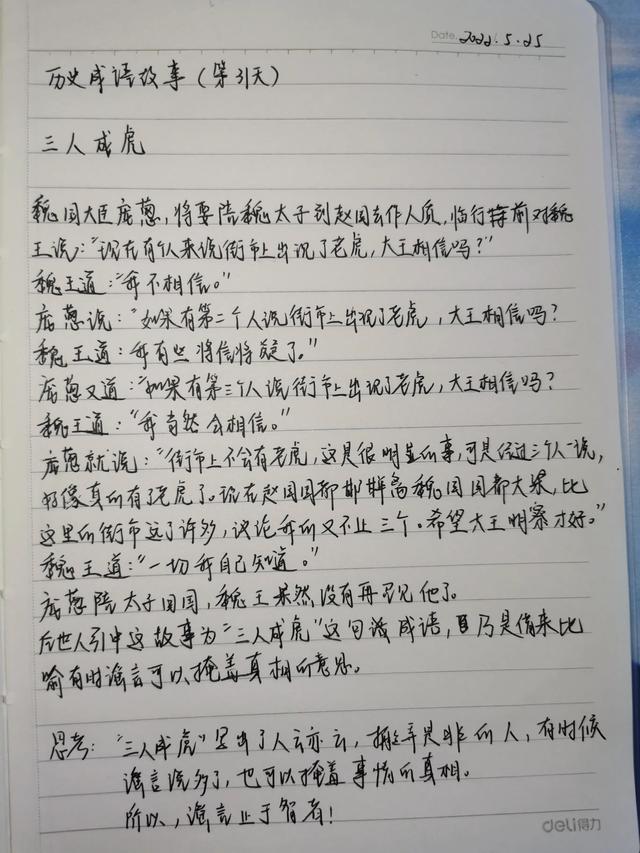 Date. 2022.5.25
历史成语故事（第31天）
三人成虎
魏国大臣庞葱，将要陪魏太子到赵国去作人质，临行前对魏
王说："现在有个人来说街市上出现了老虎，大王相信吗？"
魏王道："我不相信。"
庞葱说："如果有第二个人说街市上出现了老虎，大王相信吗？
魏王道：我有些将信将疑了。"
庞葱又道："如果有第三个人说街市上出现了老虎，大王相信吗？
魏王道："我当然会相信。"
庞葱就说："街市上不会有老虎，这是很明显的事，可是经过三个人一说，
好像真的有了老虎了。现在赵国国都邯郸离魏国国都大梁，比
这里的街市远了许多，议论我的又不止三个。希望大王明察才好。"
魏王道："一切我自己知道。"
庞葱陪太子回国，魏王果然没有再召见他了。
后世人引申这故事为"三人成虎"这句话成语，乃是借来比
喻有时谣言可以掩盖真相的意思。
思考："三人成虎"写出了人云亦云，搬弄是非的人，有时候
谣言说多了，也可以掩盖事情的真相。
所以，谣言止于智者！
deli得力